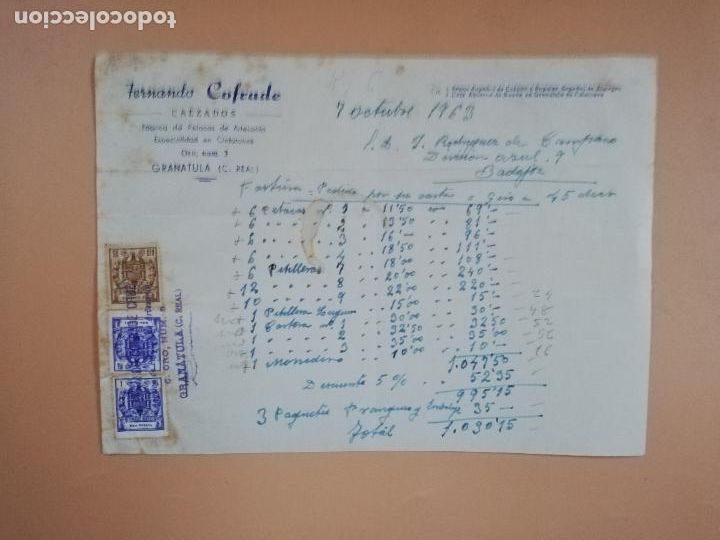 todocoleccion
todocoleccion.net
Fernando Cofrade
CALZADOS
Fábrica de Petacas de Artesanía
Especialidad en Cinturones
Oro, núm. 3
GRANATULA (C. REAL)
7 octubre 1963
S. D. J. Rodriguez de
Division azul, 9
Badajoz
Factura = Pedido por su carta = Giro a 45 dias
+ 6 Petacas nº 1 a 11'50 69'-
+ 6 " " 2 " 13'50 81'-
+ 6 " " 3 " 16'- 96'-
+ 6 " " 4 " 18'50 111'-
+ 6 Petilleras 7 " 18'00 108'-
+ 12 " " 8 " 20'00 240'-
+ 10 " " 9 " 22'00 220'-
+ 1 Petillera 15'00 15'- 24
+ 1 Cartera nº 1 30'00 30'- 48
+ 1 " " 2 32'50 32'50 52
+ 1 " " 3 35'00 35'00 56
+ 1 Monedero 10'00 10'- 16
1.047'50
Descuento 5% " " 52'35
995'15
3 Paquetes Franqueo y Embalaje 35-
Total 1.030'15
C. ORO, NUM. 3
GRANATULA (C. REAL)
UNA PESETA